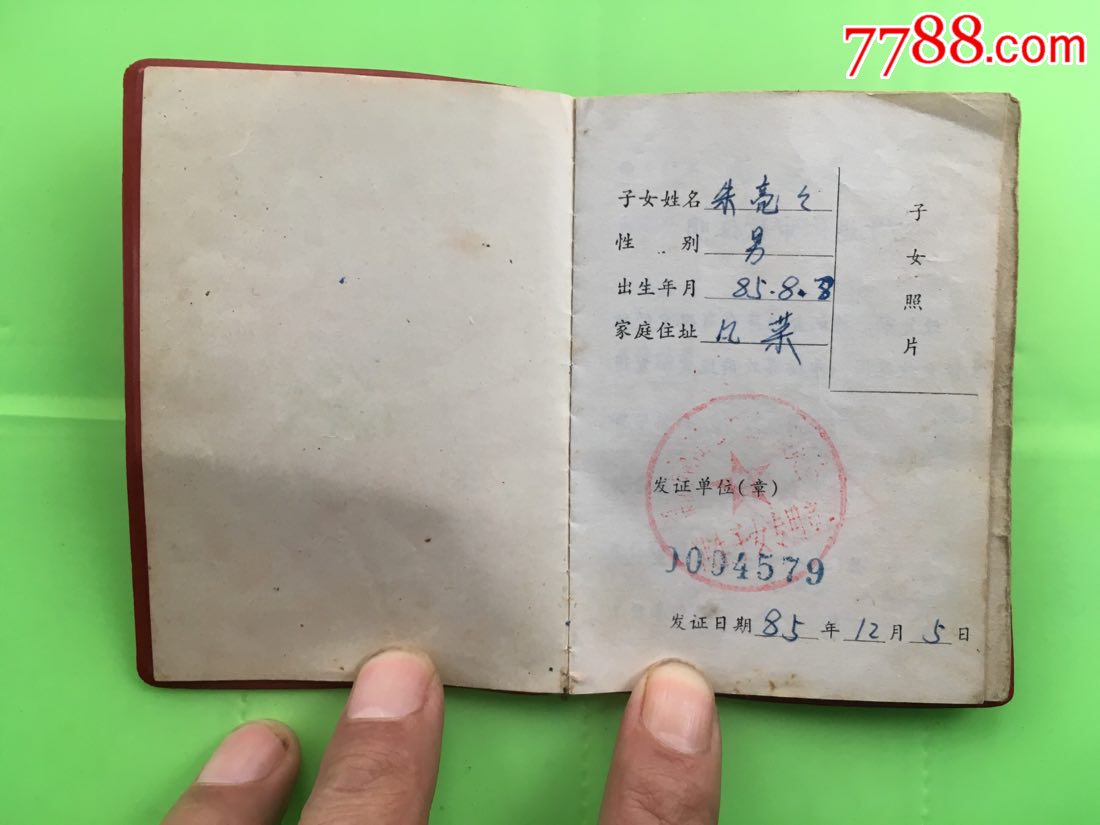 7788.com
子女姓名 朱亮々
性 别 男
出生年月 85.8.3
家庭住址 风菜
子女照片
发证单位(章)
子女专用章
0004579
发证日期 85 年 12 月 5 日